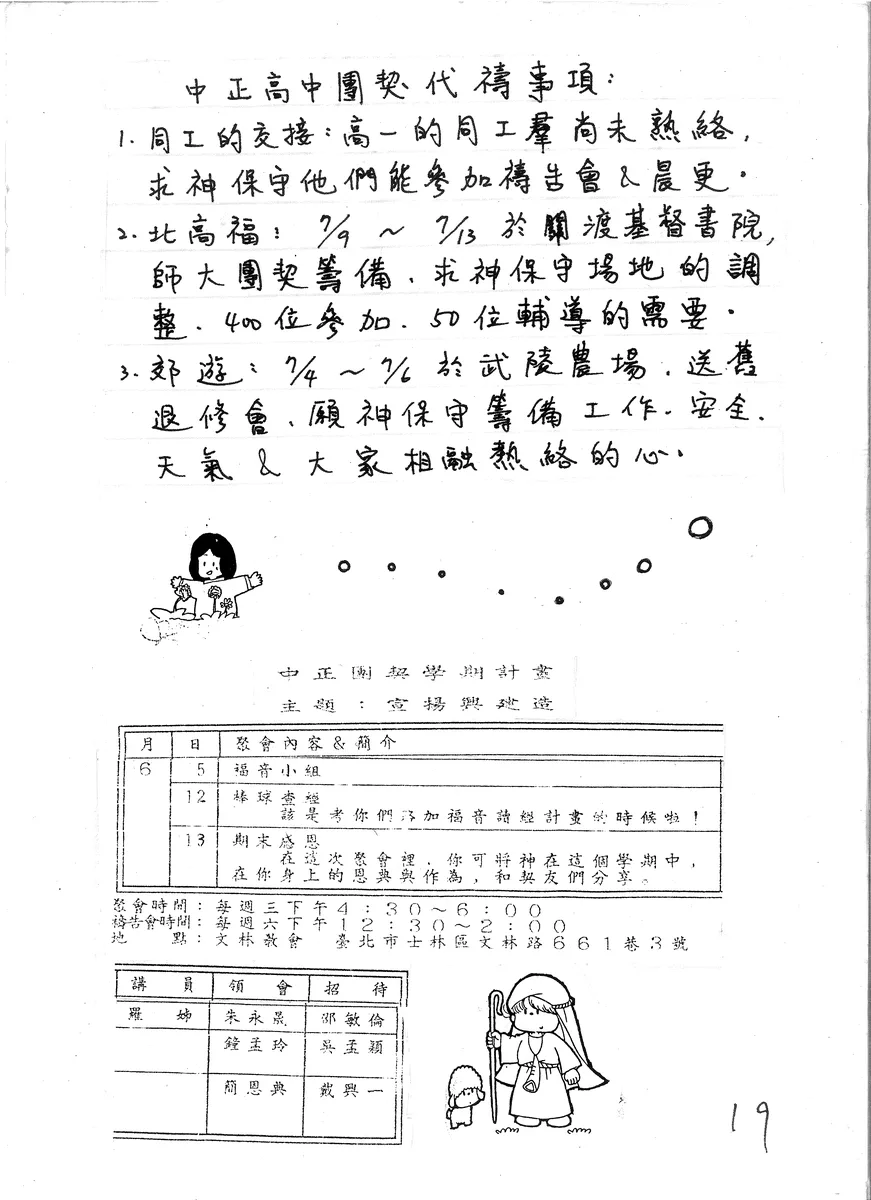 中正高中團契代禱事項：
1. 同工的交接：高一的同工羣尚未熟絡，
求神保守他們能參加禱告會&晨更。
2. 北高福：7/9～7/13於關渡基督書院，
師大團契籌備，求神保守場地的調
整、400位參加、50位輔導的需要。
3. 郊遊：7/4～7/6於武陵農場，送舊
退修會、願神保守籌備工作、安全、
天氣&大家相融熱絡的心。
中正團契學期計畫
主題：宣揚興建造
月 日 聚會內容&簡介
6 5 福音小組
12 棒球查經
該是考你們 加福音讀經計畫的時候啦！
13 期末感恩
在這次聚會裡，你可將神在這個學期中，
在你身上的恩典與作為，和契友們分享。
聚會時間：每週三下午4：30～6：00
禱告會時間：每週六下午12：30～2：00
地點：文林教會 臺北市士林區文林路661巷3號
講員 領會 招待
羅姊 朱永 邵敏倫
鐘孟玲 吳孟穎
簡恩典 戴興一
19